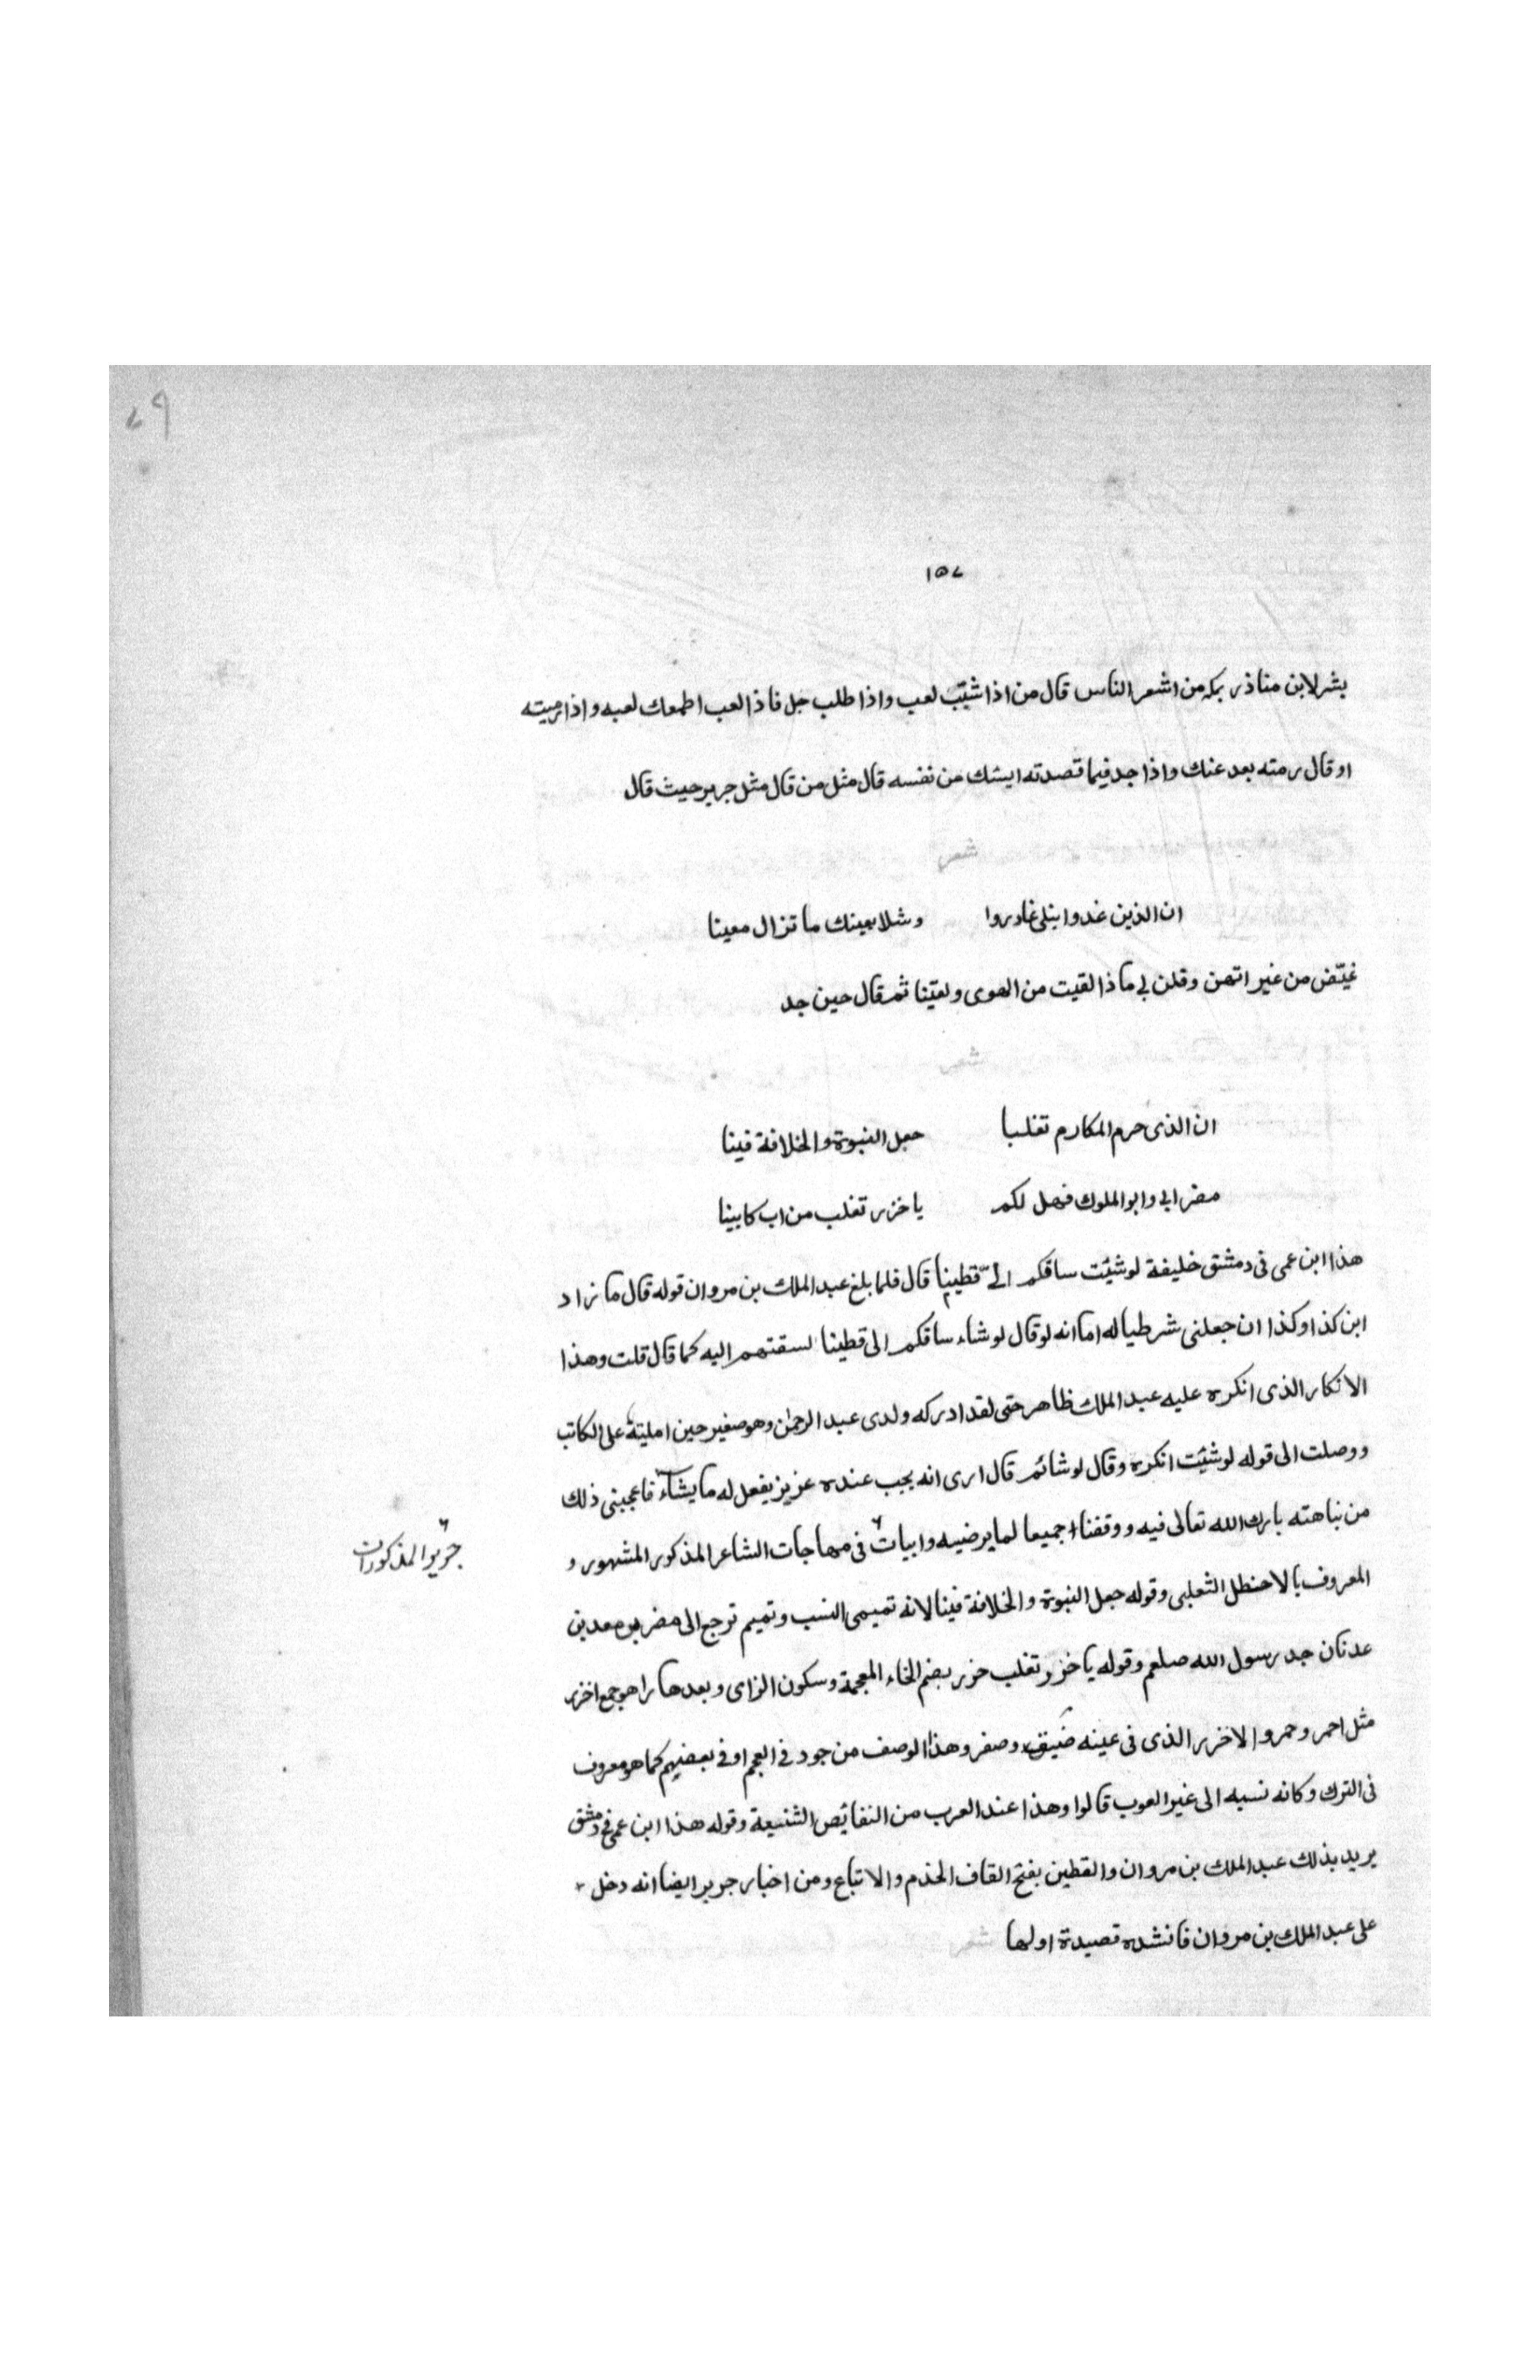 ٧٩
١٥٧
بشر لابن مناذر بمكه من اشعر الناس قال من اذا شيّب لعب واذا طلب جل فاذا لعب اطمعك لعبه واذا رميته
او قال رمته بعد عنك واذا جد فيما قصدته ايسك من نفسه قال مثل من قال مثل جرير حيث قال
شعر
ان الذين غدوا بنلى غادروا وشلا بعينك ما تزال معينا
غيّض من غير اتهن وقلن لى ماذا لقيت من الهوى ولعيّنا ثم قال حين جد
شعر
ان الذى حرم المكارم تغلبا جعل النبوة والخلافة فينا
مضر ابى وابو الملوك فهل لكم يا خزر تغلب من اب كابينا
هذا ابن عمى فى دمشق خليفة لو شئت ساقكم الىّ قطينا قال فلما بلغ عبد الملك بن مروان قوله قال ما زاد
ابن كذا وكذا ان جعلنى شرطيا له اما انه لو قال لو شاء ساقكم الى قطينا لسقتهم اليه كما قال قلت وهذا
الانكار الذى انكره عليه عبد الملك ظاهر حتى لقد ادركه ولدى عبد الرحمٰن وهو صغير حين امليته على الكاتب
ووصلت الى قوله لو شئت انكره وقال لو شائم قال ارى انه يجب عنده عزيز يفعل له ما يشاء فاعجبنى ذلك
من نباهته بارك الله تعالى فيه ووقفنا جميعا لما يرضيه وابيات فى مهاجات الشاعر المذكور المشهور و
جرير المذكورات
المعروف بالاحنطل الثعلبى وقوله جعل النبوة والخلافة فينا لانه تميمى النسب وتميم ترجع الى مضر بن معد بن
عدنان جد رسول الله صلعم وقوله يا خزر تغلب خزر بضم الخاء المعجمة وسكون الزاى وبعدها را هو جمع اخزر
مثل احمر وحمر والاخزر الذى فى عينه ضيق وصفر وهذا الوصف من جود فى العجم او فى بعضهم كما هو معروف
فى الترك وكانه نسبه الى غير العرب قالوا وهذا عند العرب من النقائص الشنيعة وقوله هذا ابن عمى فى دمشق
يريد بذلك عبد الملك بن مروان والقطين بفتح القاف الخدم والاتباع ومن اخبار جرير ايضا انه دخل
على عبد الملك بن مروان فانشده قصيدة اولها شعر